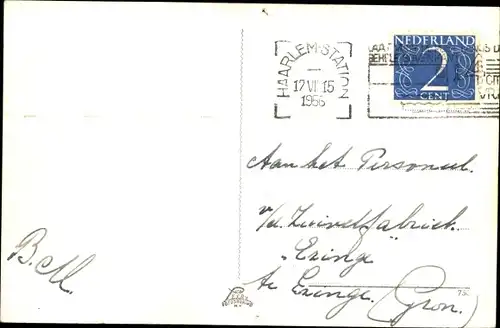 HAARLEM-STATION
17 VI 15
1955
NEDERLAND
2
CENT
Aan het Personeel.
v/d. Zuivelfabriek
"Ezinge"
te Ezinge. (Gron.)
B.M.